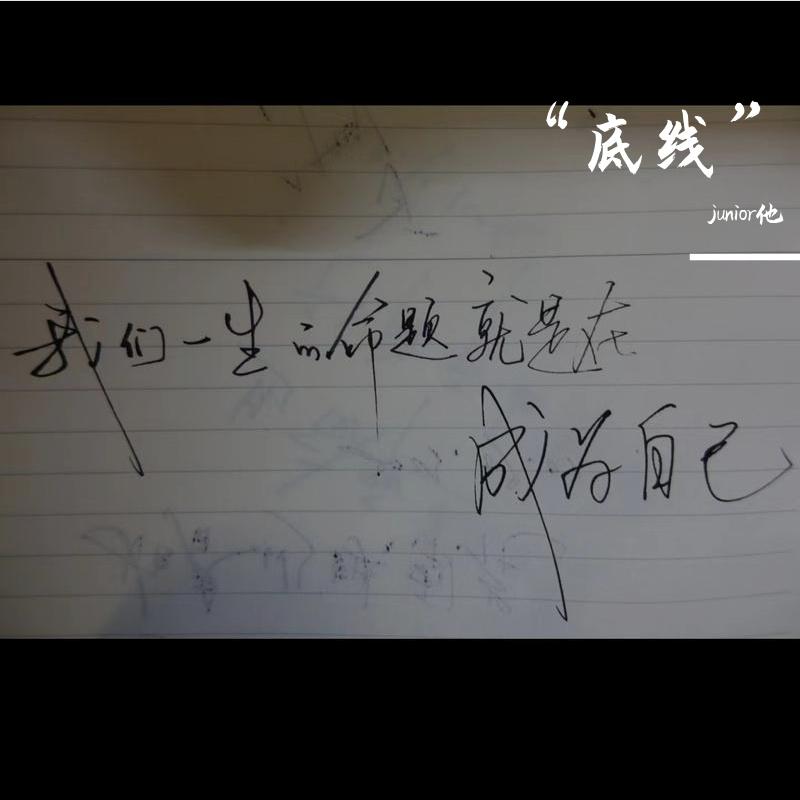 “底线”
junior他
我们一生的命题就是在
成为自己